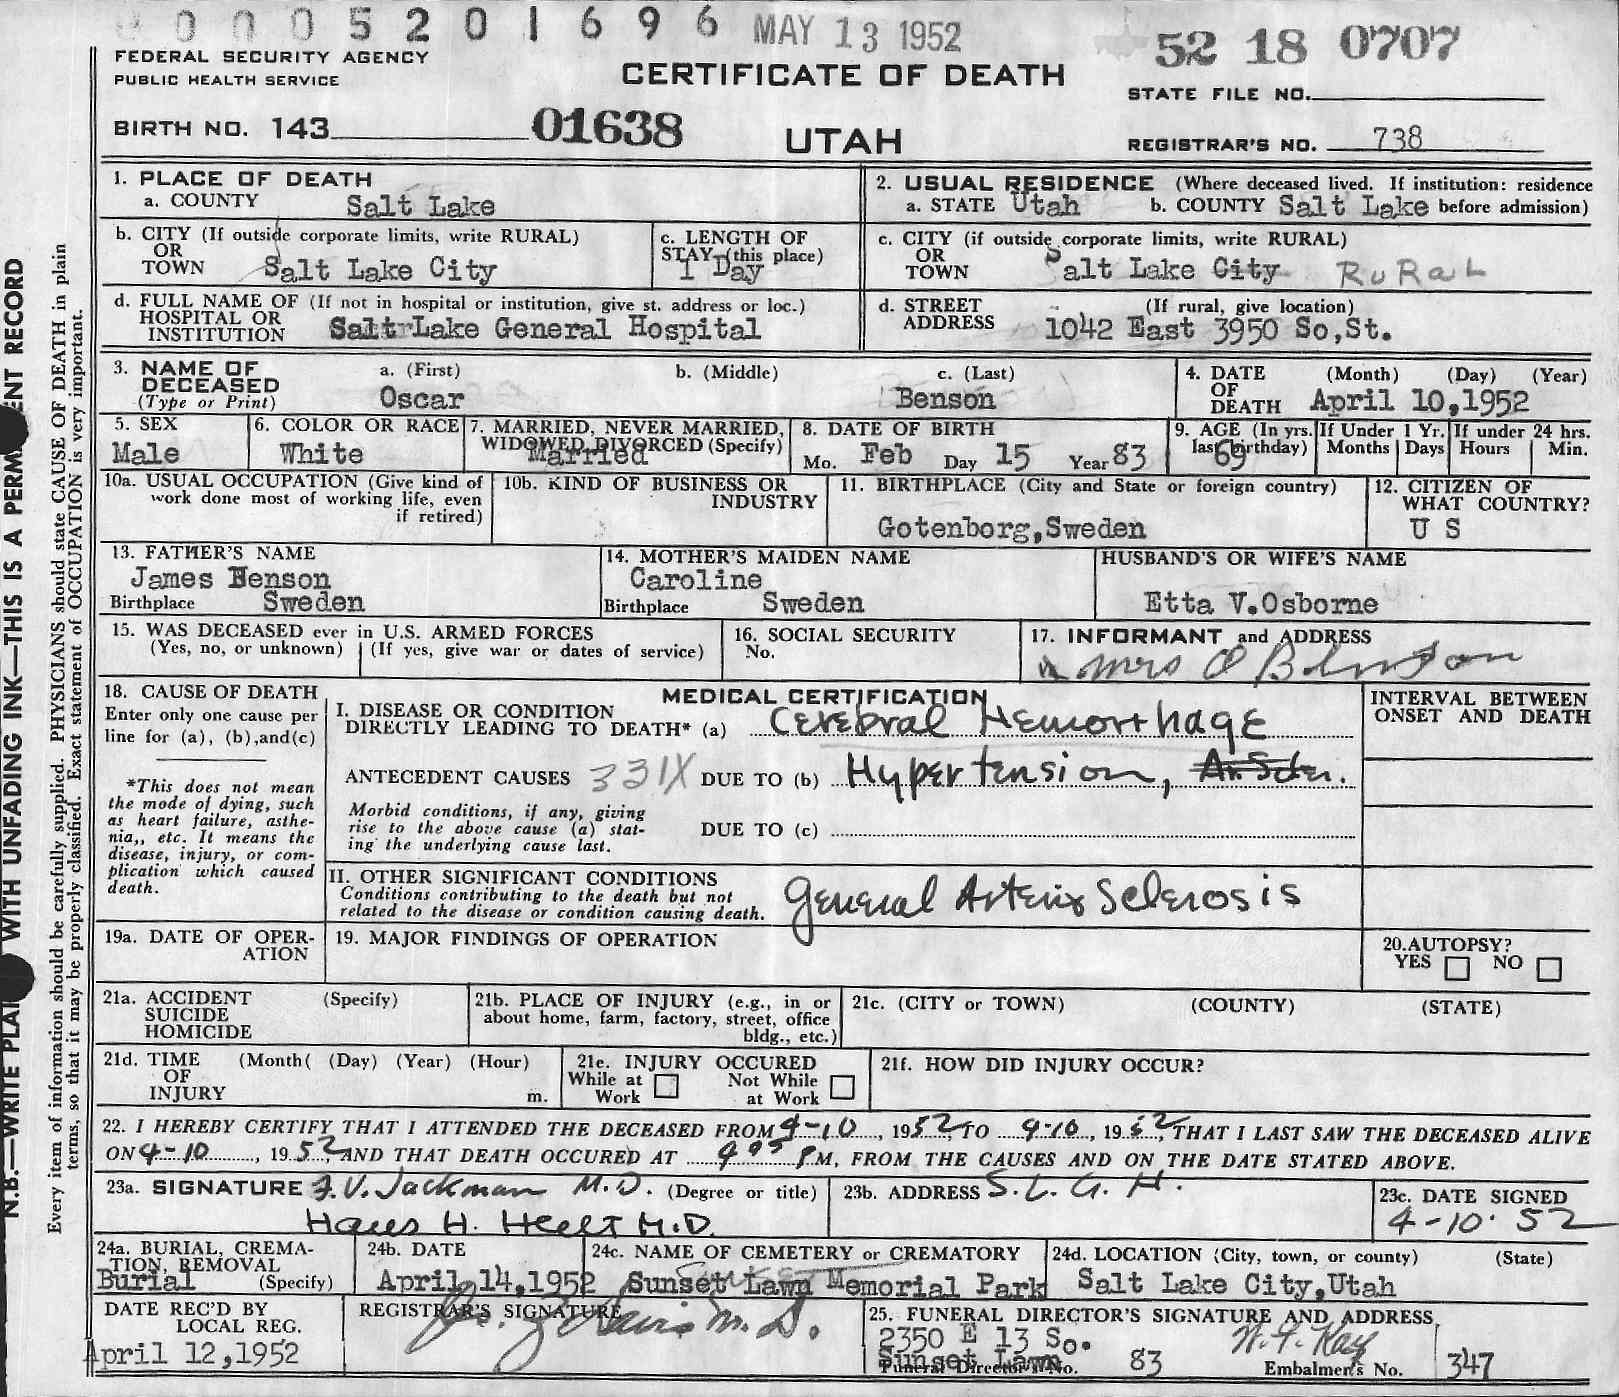 0 0 0 5 2 0 1 6 9 6 MAY 13 1952
52 18 0707
FEDERAL SECURITY AGENCY
PUBLIC HEALTH SERVICE
CERTIFICATE OF DEATH
STATE FILE NO.
BIRTH NO. 143 01638
UTAH
REGISTRAR'S NO. 738
1. PLACE OF DEATH
a. COUNTY Salt Lake
2. USUAL RESIDENCE (Where deceased lived. If institution: residence
a. STATE Utah b. COUNTY Salt Lake before admission)
b. CITY (If outside corporate limits, write RURAL)
OR
TOWN Salt Lake City
c. LENGTH OF
STAY (this place)
1 Day
c. CITY (if outside corporate limits, write RURAL)
OR
TOWN Salt Lake City RURAL
d. FULL NAME OF (If not in hospital or institution, give st. address or loc.)
HOSPITAL OR
INSTITUTION Salt Lake General Hospital
d. STREET (If rural, give location)
ADDRESS 1042 East 3950 So,St.
3. NAME OF a. (First) b. (Middle) c. (Last)
DECEASED
(Type or Print) Oscar Benson
4. DATE (Month) (Day) (Year)
OF
DEATH April 10,1952
5. SEX
Male
6. COLOR OR RACE
White
7. MARRIED, NEVER MARRIED,
WIDOWED, DIVORCED (Specify)
Married
8. DATE OF BIRTH
Mo. Feb Day 15 Year 83
9. AGE (In yrs.
last birthday)
69
If Under 1 Yr.
Months Days
If under 24 hrs.
Hours Min.
10a. USUAL OCCUPATION (Give kind of
work done most of working life, even
if retired)
10b. KIND OF BUSINESS OR
INDUSTRY
11. BIRTHPLACE (City and State or foreign country)
Gotenborg,Sweden
12. CITIZEN OF
WHAT COUNTRY?
U S
13. FATHER'S NAME
James Benson
Birthplace Sweden
14. MOTHER'S MAIDEN NAME
Caroline
Birthplace Sweden
HUSBAND'S OR WIFE'S NAME
Etta V.Osborne
15. WAS DECEASED ever in U.S. ARMED FORCES
(Yes, no, or unknown) (If yes, give war or dates of service)
16. SOCIAL SECURITY
No.
17. INFORMANT and ADDRESS
Mrs O Benson
18. CAUSE OF DEATH
Enter only one cause per
line for (a), (b),and(c)
*This does not mean
the mode of dying, such
as heart failure, asthe-
nia,, etc. It means the
disease, injury, or com-
plication which caused
death.
MEDICAL CERTIFICATION
I. DISEASE OR CONDITION
DIRECTLY LEADING TO DEATH* (a) Cerebral Hemorrhage
ANTECEDENT CAUSES 331X DUE TO (b) Hypertension,
Morbid conditions, if any, giving
rise to the above cause (a) stat-
ing the underlying cause last.
DUE TO (c)
INTERVAL BETWEEN
ONSET AND DEATH
II. OTHER SIGNIFICANT CONDITIONS
Conditions contributing to the death but not
related to the disease or condition causing death.
General Arterio Sclerosis
19a. DATE OF OPER-
ATION
19. MAJOR FINDINGS OF OPERATION
20.AUTOPSY?
YES NO
21a. ACCIDENT (Specify)
SUICIDE
HOMICIDE
21b. PLACE OF INJURY (e.g., in or
about home, farm, factory, street, office
bldg., etc.)
21c. (CITY or TOWN) (COUNTY) (STATE)
21d. TIME (Month( (Day) (Year) (Hour)
OF
INJURY m.
21e. INJURY OCCURED
While at Work
Not While at Work
21f. HOW DID INJURY OCCUR?
22. I HEREBY CERTIFY THAT I ATTENDED THE DECEASED FROM 4-10, 1952, TO 4-10, 1952, THAT I LAST SAW THE DECEASED ALIVE
ON 4-10, 1952, AND THAT DEATH OCCURED AT 9 05 PM, FROM THE CAUSES AND ON THE DATE STATED ABOVE.
23a. SIGNATURE F.V. Jackman M.D. (Degree or title)
M.D.
23b. ADDRESS S.L.G.H.
23c. DATE SIGNED
4-10-52
24a. BURIAL, CREMA-
TION, REMOVAL
Burial (Specify)
24b. DATE
April 14,1952
24c. NAME OF CEMETERY or CREMATORY
Sunset Lawn Memorial Park
24d. LOCATION (City, town, or county) (State)
Salt Lake City,Utah
DATE REC'D BY
LOCAL REG.
April 12,1952
REGISTRAR'S SIGNATURE
M.D.
25. FUNERAL DIRECTOR'S SIGNATURE AND ADDRESS
2350 E 13 So.
Sunset Lawn
Funeral Director's No. 83
Embalmer's No. 347
N.B.—WRITE WITH UNFADING INK—THIS IS A RECORD
Every item of information should be carefully supplied. PHYSICIANS should state CAUSE OF DEATH in plain
terms, so that it may be properly classified. Exact statement of OCCUPATION is very important.